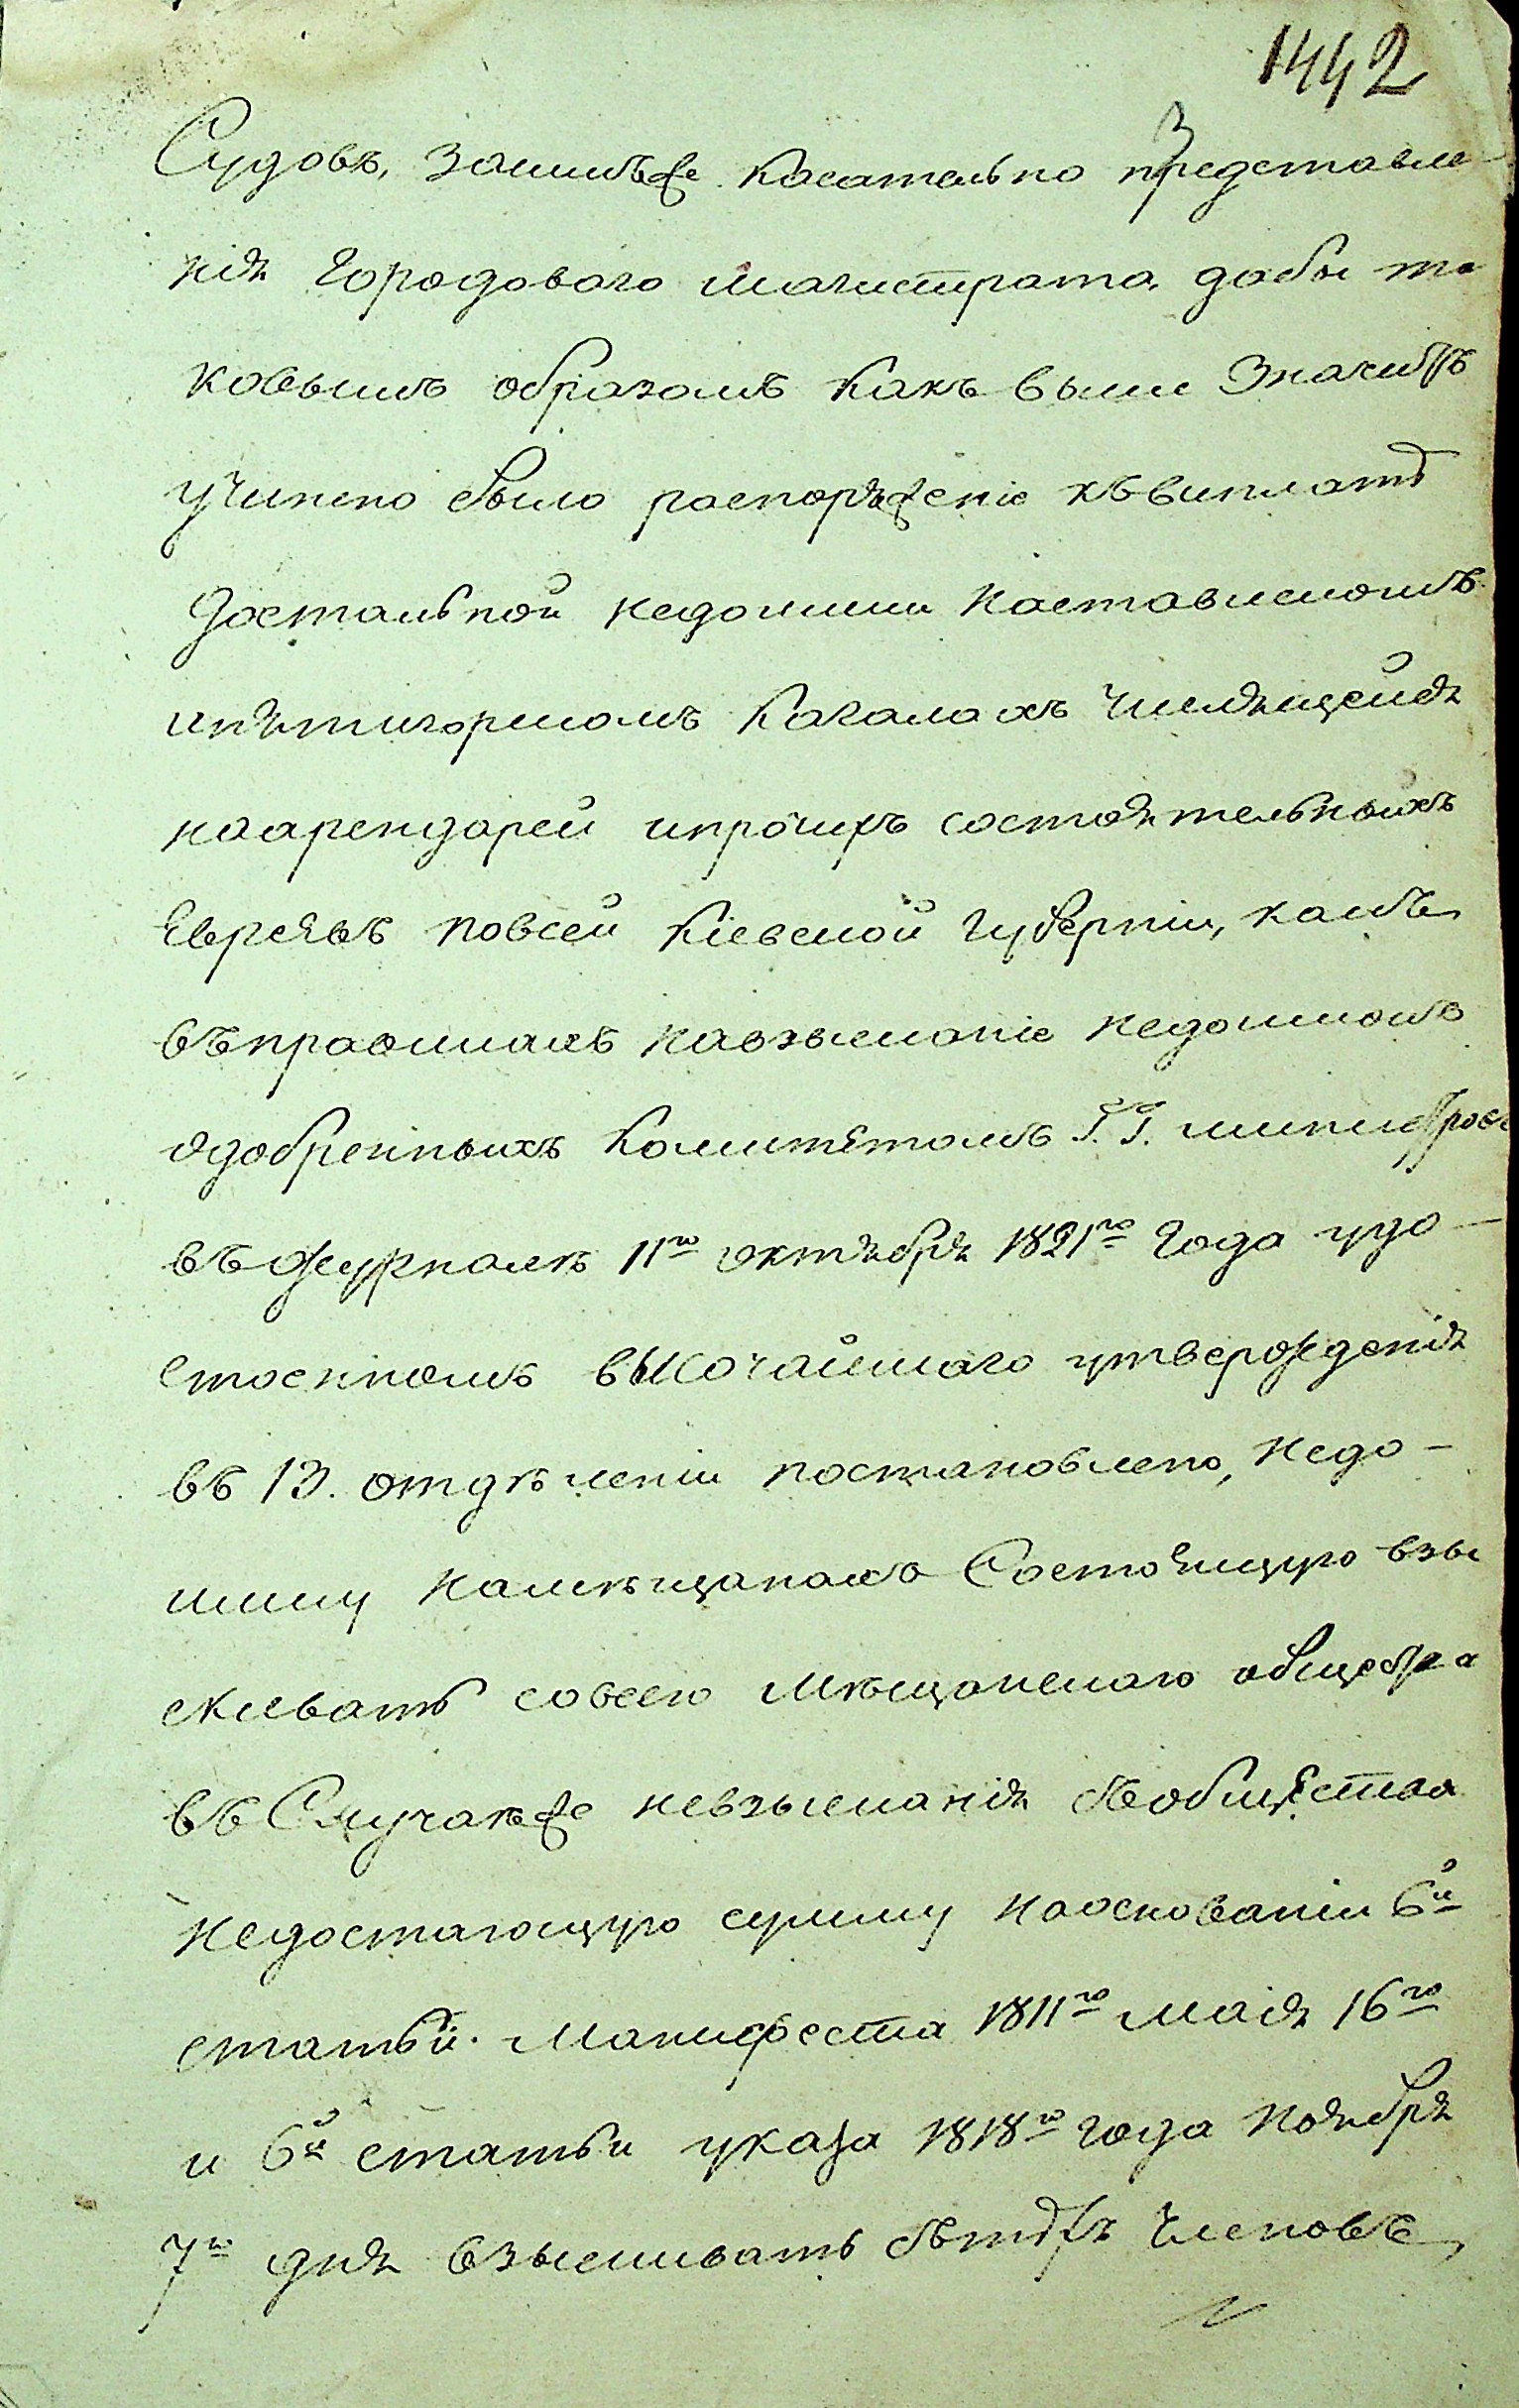 1442
3
Судовъ, затѣмъ же касательно представле-
нія Городоваго магистрата, дабы та
ковымъ образомъ какъ выше Значитъ
учинено было распоряженіе къ выплатѣ
Достальной недоимки наставискомъ
ипятигорскомъ Кагалахъ числящейся
наарендарей ипрочихъ состоятельныхъ
Евреевъ повсей Кіевской Губерніи, какъ
въправилахъ навзысканіе недоимокъ
одобренныхъ Комитетомъ Г.Г. министровъ
въ журналѣ 11го октября 1821го Года удо-
стоенномъ высочайшаго утвержденія
въ 13. отдѣленіи постановлено, недо-
имку намѣщанахъ Состоящую взы
скивать совсего мѣщанскаго общества
въ Случаѣже невзысканія съобщества
недостающую сумму наоснованіи 6й
статьи. Манифеста 1811го маія 16го
и 6й статьи указа 1818го года ноября
7го дня взыскивать сътѣхъ Членовъ